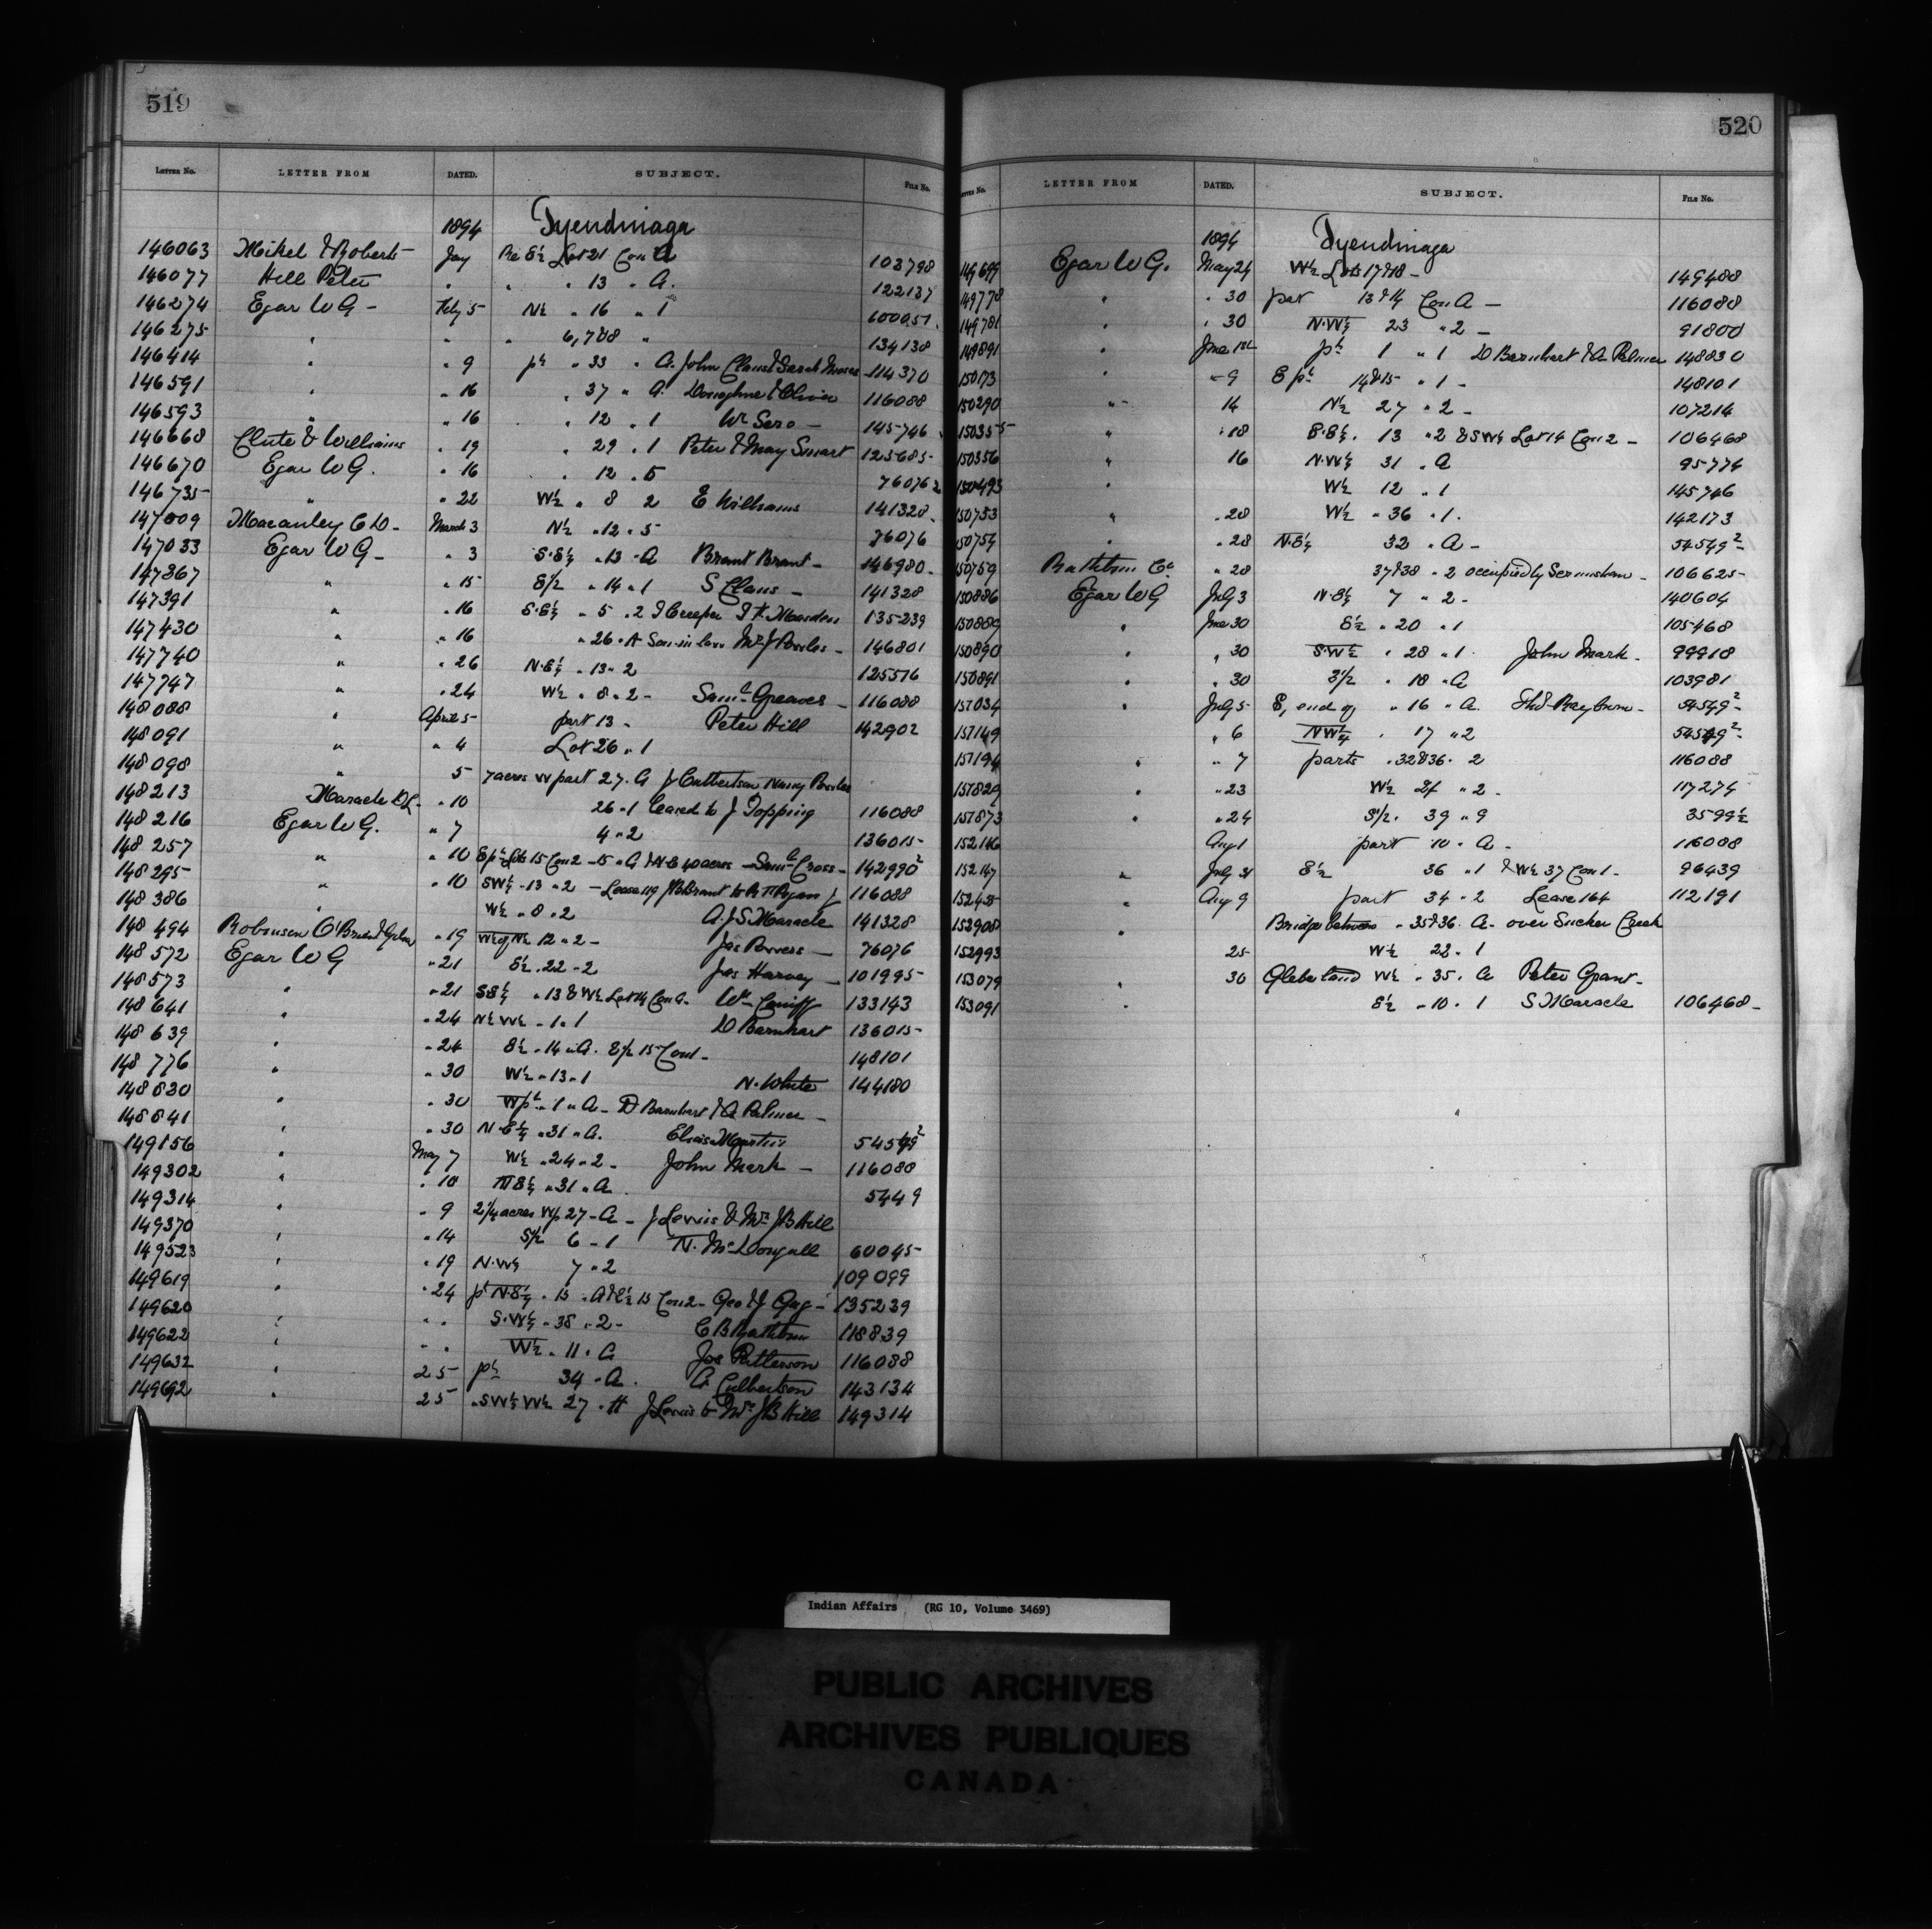 519
LETTER No. LETTER FROM DATED. SUBJECT. FILE No.
1894 Tyendinaga
146063 Mikel & Roberts Jay Re E½ Lot 21 Con A 103798
146077 Hill Peter " " " 13 " A. 122137
146274 Egar W G - Feby 5 N½ " 16 " 1 100051
146275 " " " 6, 7 & 8 " 134138
146414 " " 9 pt " 33 " A. John Claus & Sarah Moses 114370
146591 " " 16 " 37 " A. Donoghue & Oliver 116088
146593 " " 16 " 12 " 1 Wm Sero - 145746
146668 Clute & Williams " 19 " 29 " 1 Peter & May Smart 125685
146670 Egar W G. " 16 " 12 " 5 76076
146735 " " 22 W½ " 8 2 E Williams 141328
147009 Macauley C D - March 3 N½ " 12 " 5 76076
147033 Egar W G - " 3 S.E¼ " 13 " A Brant Brant - 146980
147367 " " 15 E/2 " 14 " 1 S Claus - 141328
147391 " " 16 S.E¼ " 5 " 2 135239
147430 " " 16 " 26 " A Son-in-law Mrs J Powles - 146801
147740 " " 26 N.E¼ " 13 " 2 125516
147747 " " 24 W½ " 8 " 2 - Saml Greaves - 116088
148088 " April 5 part 13 - Peter Hill 142902
148091 " " 4 Lot 26 " 1
148098 " 5 7 acres W part 27 " A J Culbertson Nancy Powles
148213 Maracle D L - " 10 26 " 1 leased to J Topping 116088
148216 Egar W G. " 7 4 " 2 136015
148257 " " 10 E pt Lots 15 Con 2 - 15 " A & N.E 40 acres - Saml Cross - 142990²
148295 " " 10 SW¼ " 13 " 2 - Lease 119 J B Brant to 116088
148386 " W½ " 8 " 2 A. J S Maracle 141328
148494 Robinson O'Brien & " 19 W½ of N½ 12 " 2 - Jas Powers - 76076
148572 Egar W G " 21 E½ " 22 " 2 Jas Harvey - 101995
148573 " " 21 S E¼ " 13 & W½ Lot 14 Con A - Wm Caniff 133143
148641 " " 24 N½ W½ " 1 " 1 D Barnhart 136015
148639 " " 24 E½ " 14 " A. E/2 15 Con 1 - 148101
148776 " " 30 W½ " 13 " 1 N. White 144180
148820 " " 30 W pt " 1 " A - D Barnhart & A Palmer -
148841 " " 30 N.E¼ " 31 " A. Elias Martin 54549²
149156 " May 7 W½ " 24 " 2 - John Mark - 116088
149302 " " 10 N E¼ " 31 " A 5449
149314 " " 9 2¼ acres W p 27 - A - J Lewis & Mrs J B Hill
149370 " " 14 S/2 6 - 1 N. McDougall 60045
149523 " " 19 N.W¼ 7 " 2 109099
149619 " " 24 pt N.E¼ " 15 " A & E½ 15 Con 2 - Geo & J Gag - 135239
149620 " " " S.W¼ " 38 " 2 - C B Rathbun 118839
149622 " " " W½ " 11 " A Jos Patterson 116088
149632 " 25 pt 34 " A. A Culbertson 143134
149692 " 25 " SW¼ W½ 27 " A J Lewis to Mrs J B Hill 149314
520
LETTER No. LETTER FROM DATED. SUBJECT. FILE No.
1894 Tyendinaga
149699 Egar W G. May 24 W½ Lots 17 & 18 - 149488
149778 " " 30 part 13 & 14 Con A - 116088
149781 " " 30 N.W¼ 23 " 2 - 91800
149891 " June 1st pt 1 " 1 D Barnhart & A Palmer 148830
150173 " " 9 E pt 14 & 15 " 1 - 148101
150290 " 14 N½ 27 " 2 - 107214
150355 " " 18 S.E¼. 13 " 2 & SW¼ Lot 14 Con 2 - 106468
150356 " 16 N.W¼ 31 " A 95774
150493 " W½ 12 " 1 145746
150753 " " 28 W½ " 36 " 1. 142173
150754 " " 28 N.E¼ 32 " A - 54549²
150759 Rathbun Co " 28 37 & 38 " 2 occupied by - 106625
150886 Egar W G July 3 N.E¼ 7 " 2 - 140604
150889 " June 30 E½ " 20 " 1 105468
150890 " " 30 S.W¼ " 28 " 1. John Mark - 99918
150891 " " 30 S/2 " 18 " A 103981
151034 " July 5 E, end of " 16 " A. Thos Rayburn - 54549²
151149 " 6 NW¼ " 17 " 2 54549²
151194 " " 7 parts " 32 & 36 " 2 116088
151829 " " 23 W½ 24 " 2 - 117274
151873 " " 24 S/2. 39 " 9 3599½
152146 Aug 1 part 10 " A - 116088
152147 " July 31 E½ 36 " 1 & W½ 37 Con 1 - 96439
152458 " Aug 9 part 34 " 2 Lease 164 112191
152908 " Bridge between " 35 & 36 " A - over Sucker Creek
152993 25 W½ 22 " 1
153079 30 Glebe land W½ " 35 " A Peter Grant -
153091 " E½ " 10 " 1 S Maracle 106468 -
Indian Affairs (RG 10, Volume 3469)
PUBLIC ARCHIVES
ARCHIVES PUBLIQUES
CANADA